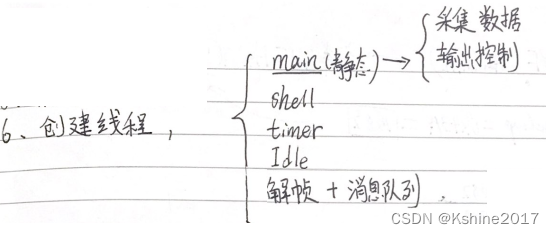 采集数据
main(静态)→ 输出控制
shell
6、创建线程,
timer
Idle
解帧 + 消息队列.
CSDN @Kshine2017